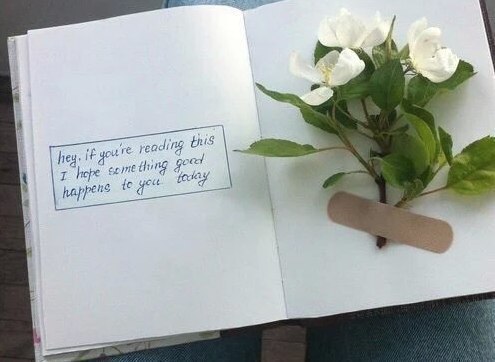 hey, if you're reading this
I hope something good
happens to you today